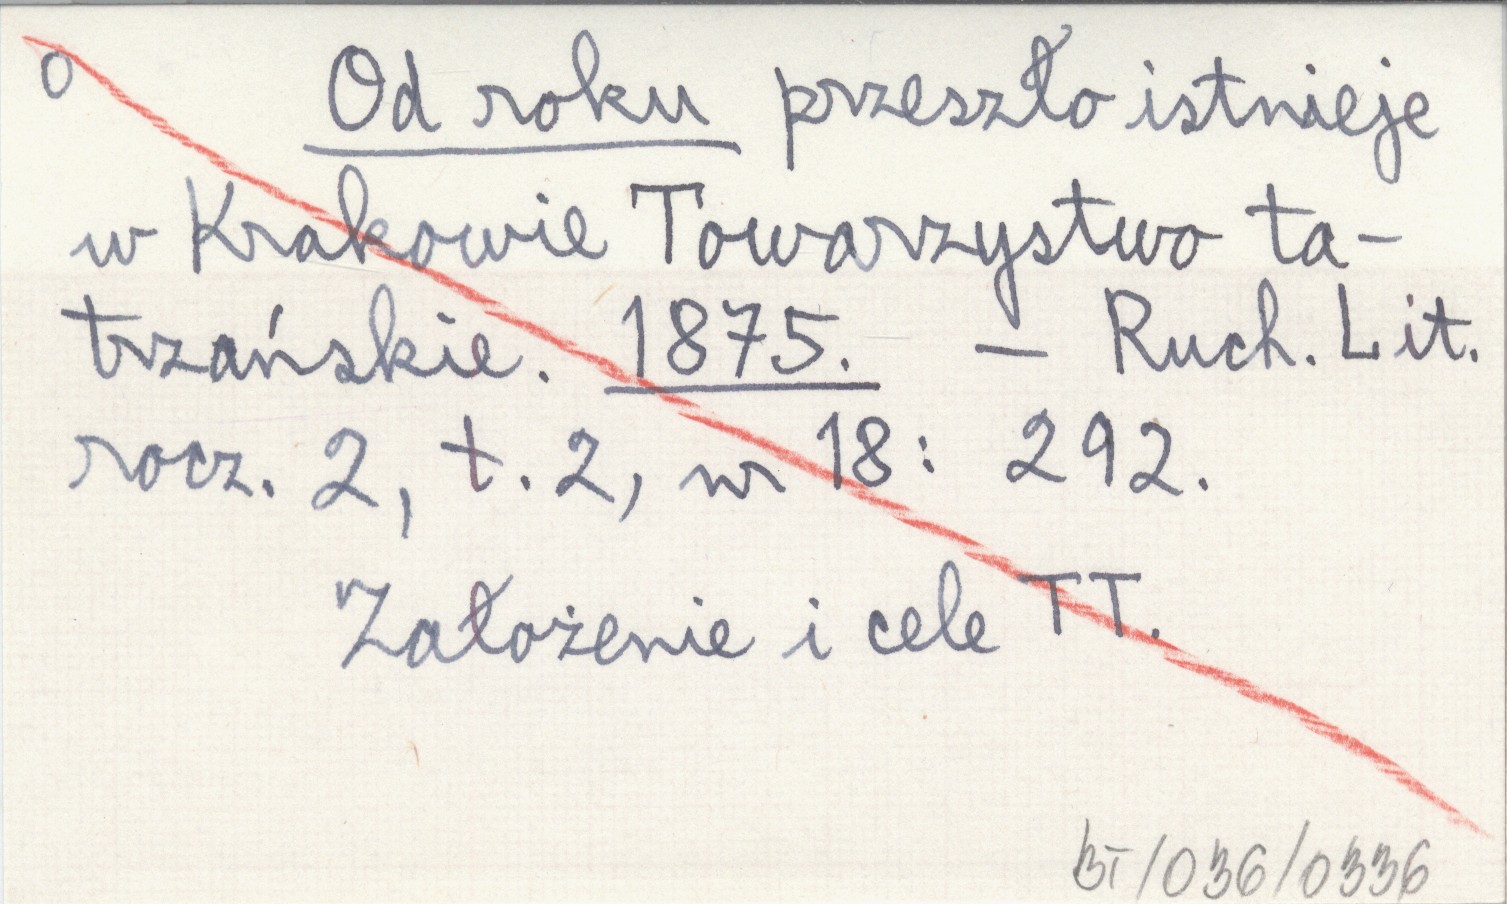 0 Od roku przeszło istnieje
w Krakowie Towarzystwo ta-
trzańskie. 1875. — Ruch. Lit.
rocz. 2, t. 2, nr 18: 292.
Założenie i cele TT.
BT/036/0336